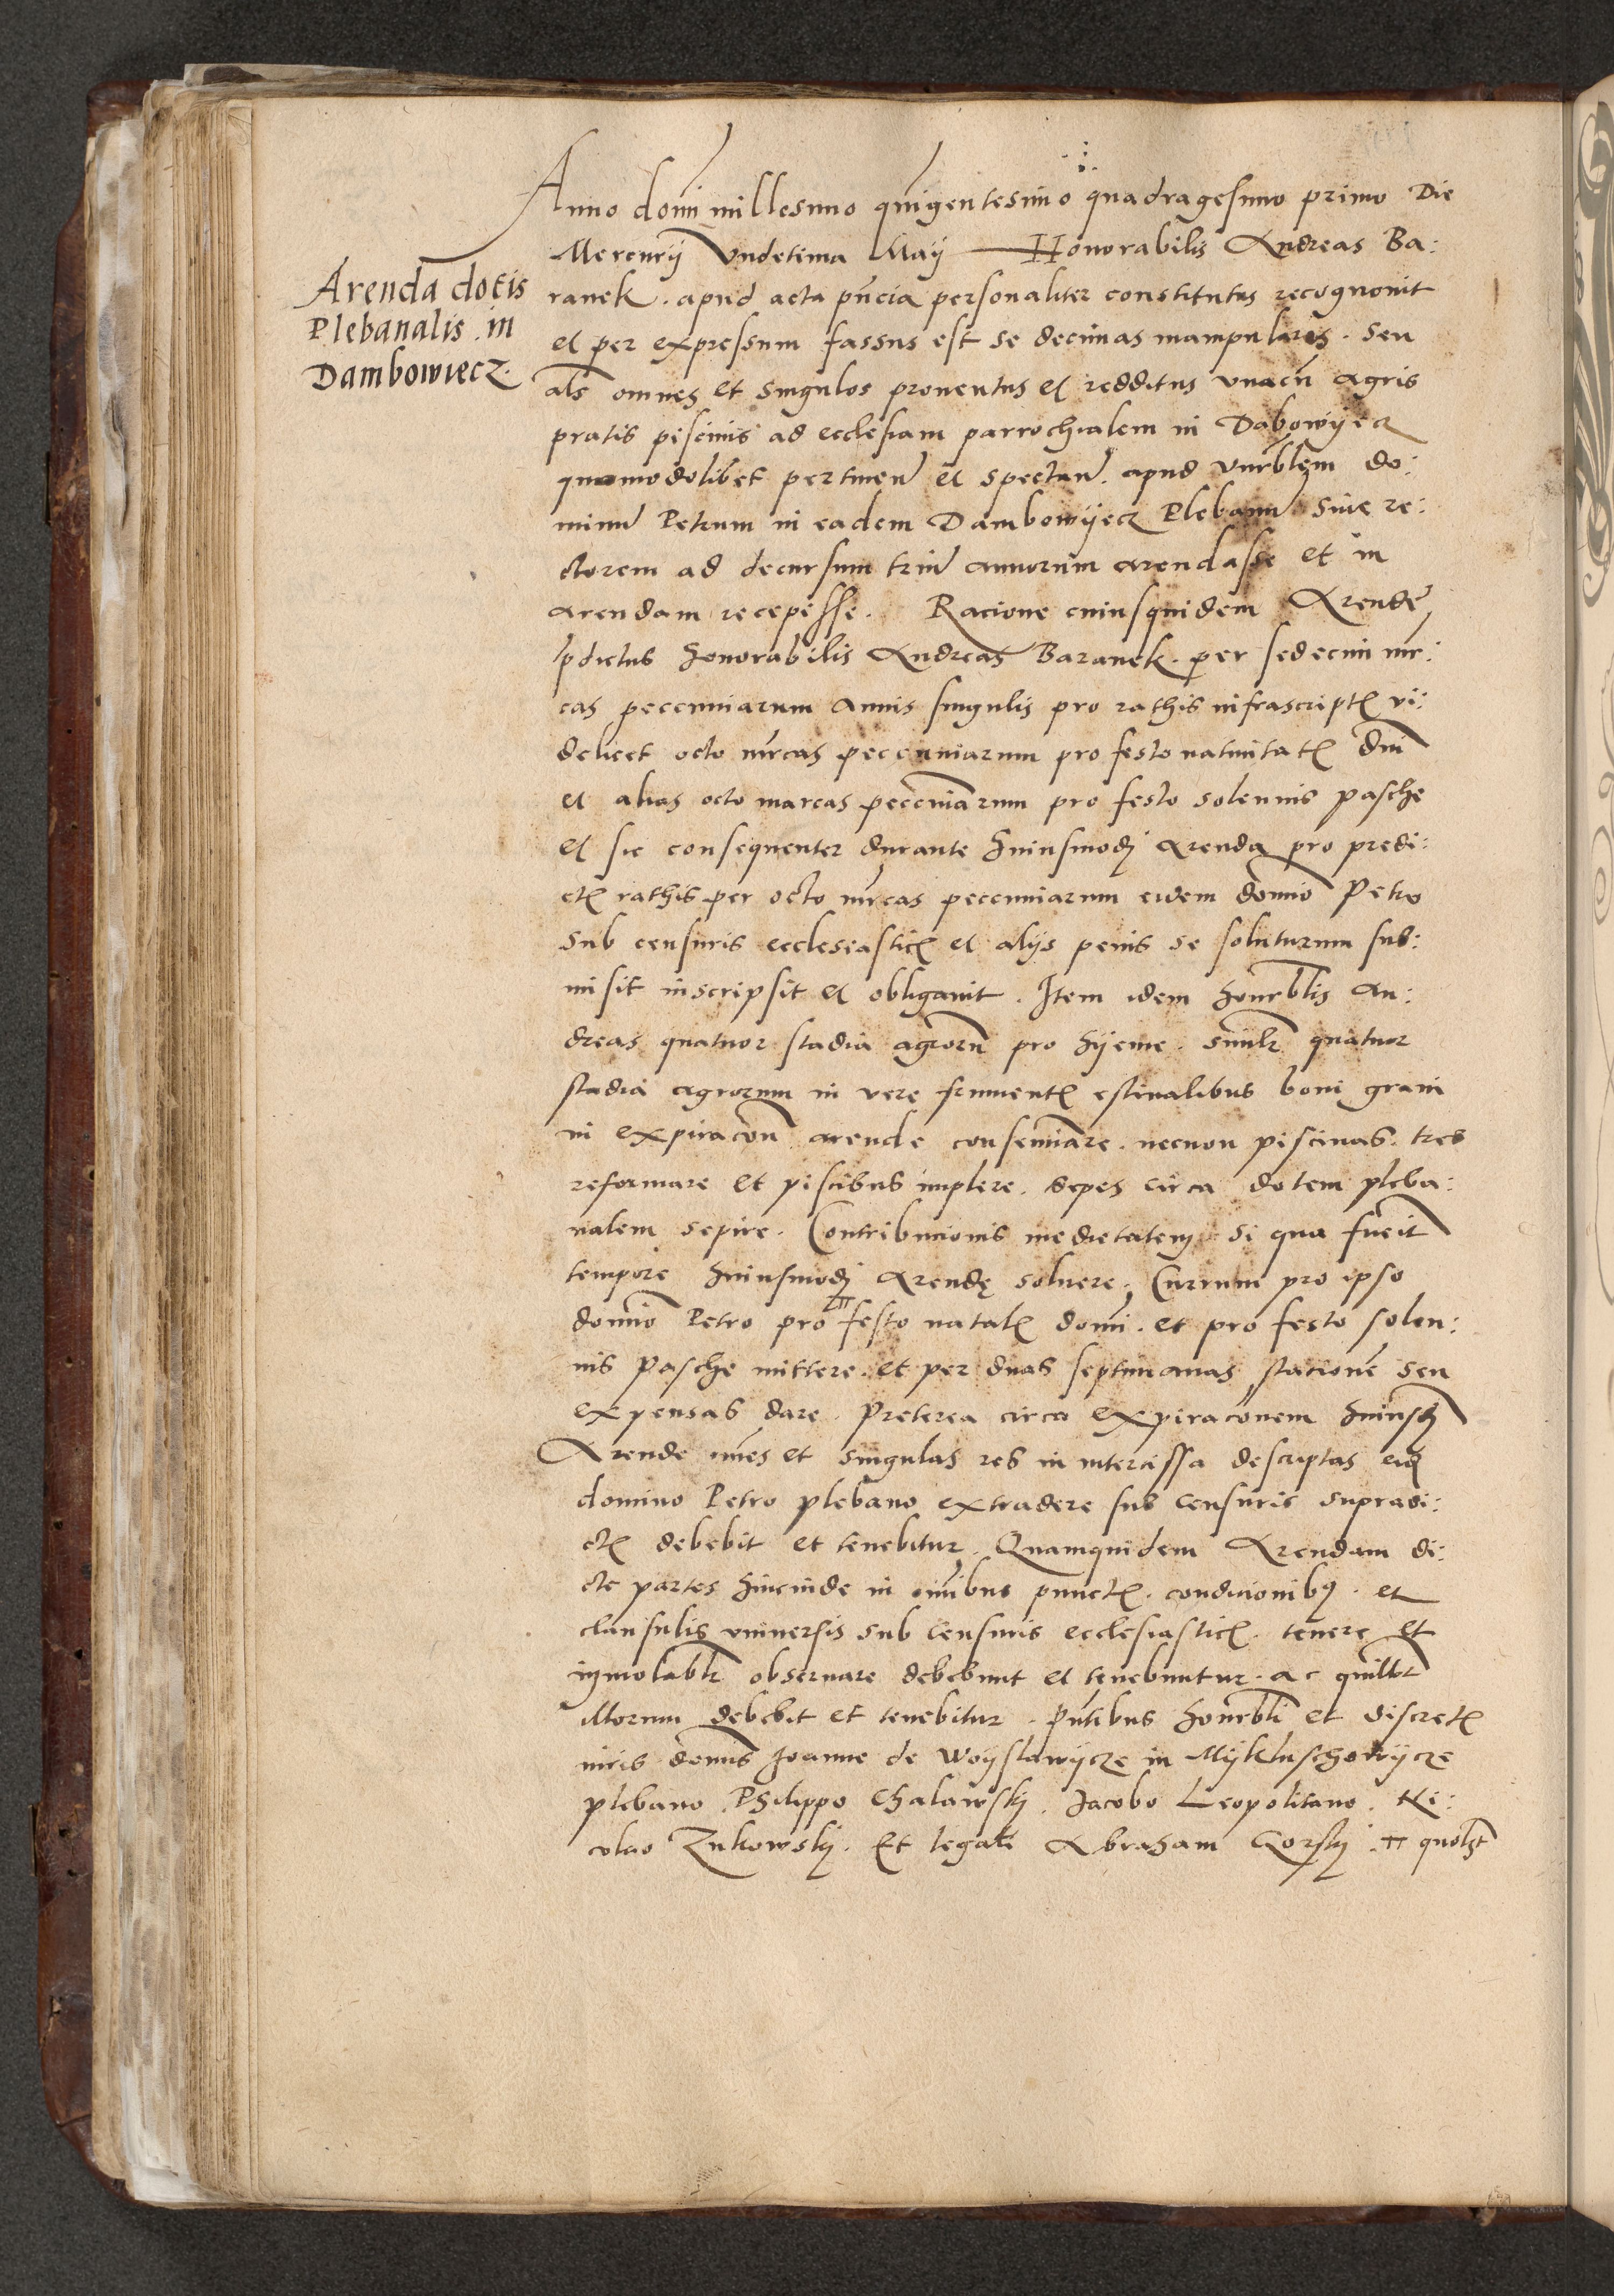 Anno domi millesimo quingentesimo quadragesimo primo Die
Mercurij Vndecima Maij Honorabilis Andreas Ba:
Arenda dotis
Plebanalis in
Dambowiecz.
ranek. apud acta pńcia personaliter constitutus recognouit
et per expressum fassus est se decimas manipulares. seu
als omnes et singulos prouentus et redditus vnacu agris
pratis piscinis ad ecclesiam parrochialem in Dabowyecz
quomodolibet pertinen et spectan. apud vnrblem do:
minu Petrum in eadem Dambowyecz Plebanu siue re:
ctorem ad decursum triu annorum arendasse et in
arendam recepisse. Racione cuiusquidem Arende
pdictus honorabilis Andreas Baranek. per sedecim mr:
cas pecuniarum annis singulis pro rathis infrascript vi:
delicet octo mrcas pecuniarum pro festo natiuitat dni
et alias octo marcas pecuniarum pro festo solennis pasche
et sic consequenter durante huiusmodj arenda pro predi:
ct rathis per octo mrcas pecuniarum eidem domio Petro
sub censuris ecclesiastic et alijs penis se soluturum sub:
misit inscripsit et obligauit. Item idem honrblis An:
dreas quatuor stadia agroru pro hyeme. similr quatuor
stadia agrorum in vere frument estiualibus boni grani
in expiracon arende conseminare. necnon piscinas. tres
reformare et piscibus implere. sepes circa dotem pleba:
nalem sepire. Contribucionis medietatem si qua fuerit
tempore huiusmodj Arendę soluere. Currum pro ipso
domio Petro pro festo natal domi. et pro festo solen:
nis Pasche mittere. et per duas septimanas stacione seu
expensas dare. Preterea circa expiraconem huiusm
Arende omes et singulas res in intercissa descriptas eid
domino Petro plebano extradere sub censuris supradi:
ct debebit et tenebitur. Quamquidem Arendam di:
cte partes hincinde in omibus punct. condicionibq. et
clausulis vniuersis sub censuris ecclesiastic. tenere et
inuiolablr obseruare debebunt et tenebuntur. ac quillibt
illorum debebit et tenebitur. Pntibus honrbli et discret
viris domis Joanne de Woyslawycze in Mykluschowycze
plebano. Philippo Chalawskj. Jacobo Leopolitano. Ni:
colao Zukowskj. Et legali Abraham Gorskj. quolst